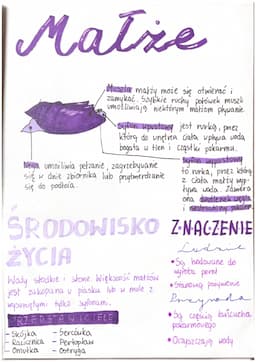 Małże
Muszla małży może się otwierać i
zamykać. Szybkie ruchy połówek muszli
umożliwiają niektórym małżom pływanie.
Syfon wpustowy jest rurką, przez
którą do wnętrza ciała wpływa woda
bogata w tlen i cząstki pokarmu.
Syfon wypustowy
to rurka, przez którą
z ciała małży wy-
pływa woda. Zawiera
ona dwutlenek węgla
i
Noga umożliwia pełzanie, zagrzebywanie
się w dnie zbiornika lub przytwierdzanie
się do podłoża.
ŚRODOWISKO
ŻYCIA
Wody słodkie i słone. Większość małżów
jest zakopana w piasku lub w mule z
wysuniętymi tylko syfonami.
PRZEDSTAWICIELE
- Szczójka - Sercówka
- Racicznica - Perłopław
- Omułka - Ostryga
ZNACZENIE
Ludzie
• Są hodowane do
wyrobu pereł
• Stanowią pożywienie
Przyroda
• Są częścią łańcucha
pokarmowego
• Oczyszczają wody